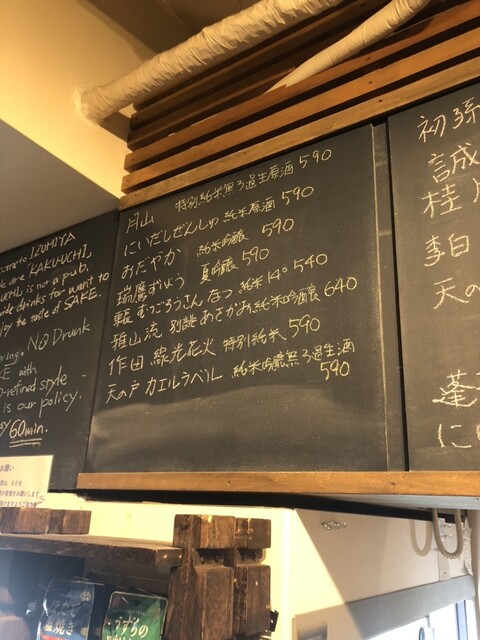 come to IZUMIYA
are "KAKU-UCHI,
UCHI is not a pub,
vide drinks for want to
joy the taste of SAKE.
No Drunk
with
refined style
is our policy.
60min.
お願い
月山 特別純米無ろ過生原酒 590
にいだしぜんしゅ 純米原酒 590
おだやか 純米吟醸 590
瑞鷹 夏吟醸 590
むごろうさん なつ 純米 14° 540
雅山流 別誂 あさがお 純米吟醸 640
作田 線光花火 特別純米 590
天の戸 カエルラベル 純米吟醸無ろ過生酒
590
初孫
誠
桂
李白
天の
蓬
に
うずらの